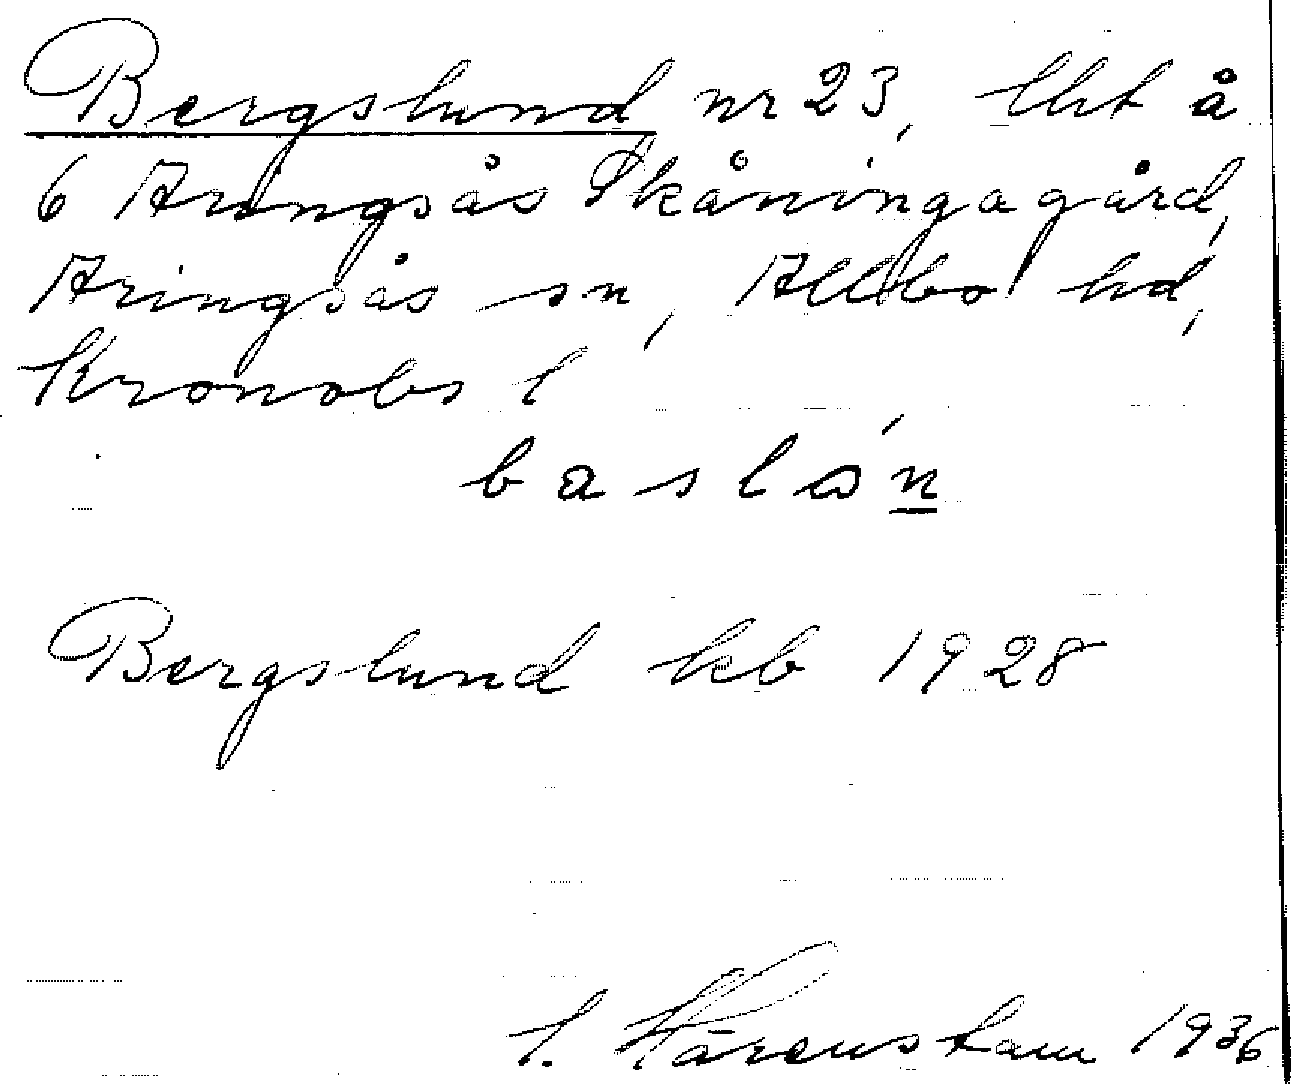 Bergslund nr 23, lht å
6 Aringsås Skåningagård,
Aringsås sn, Allbo hd,
Kronobs l
baslón
Bergslund kb 1928
S. Härenstam 1936